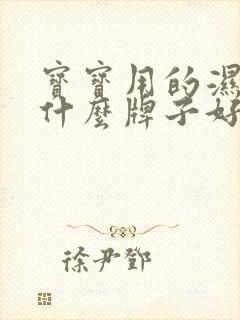 寶寶用的濕
什麼牌子好
徐尹鄧